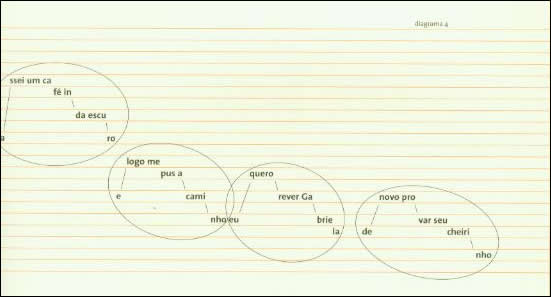 diagrama 4
ssei um ca
fé in
da escu
a
ro
logo me
pus a
e
cami
nho/eu
quero
rever Ga
brie
la
novo pro
var seu
de
cheiri
nho